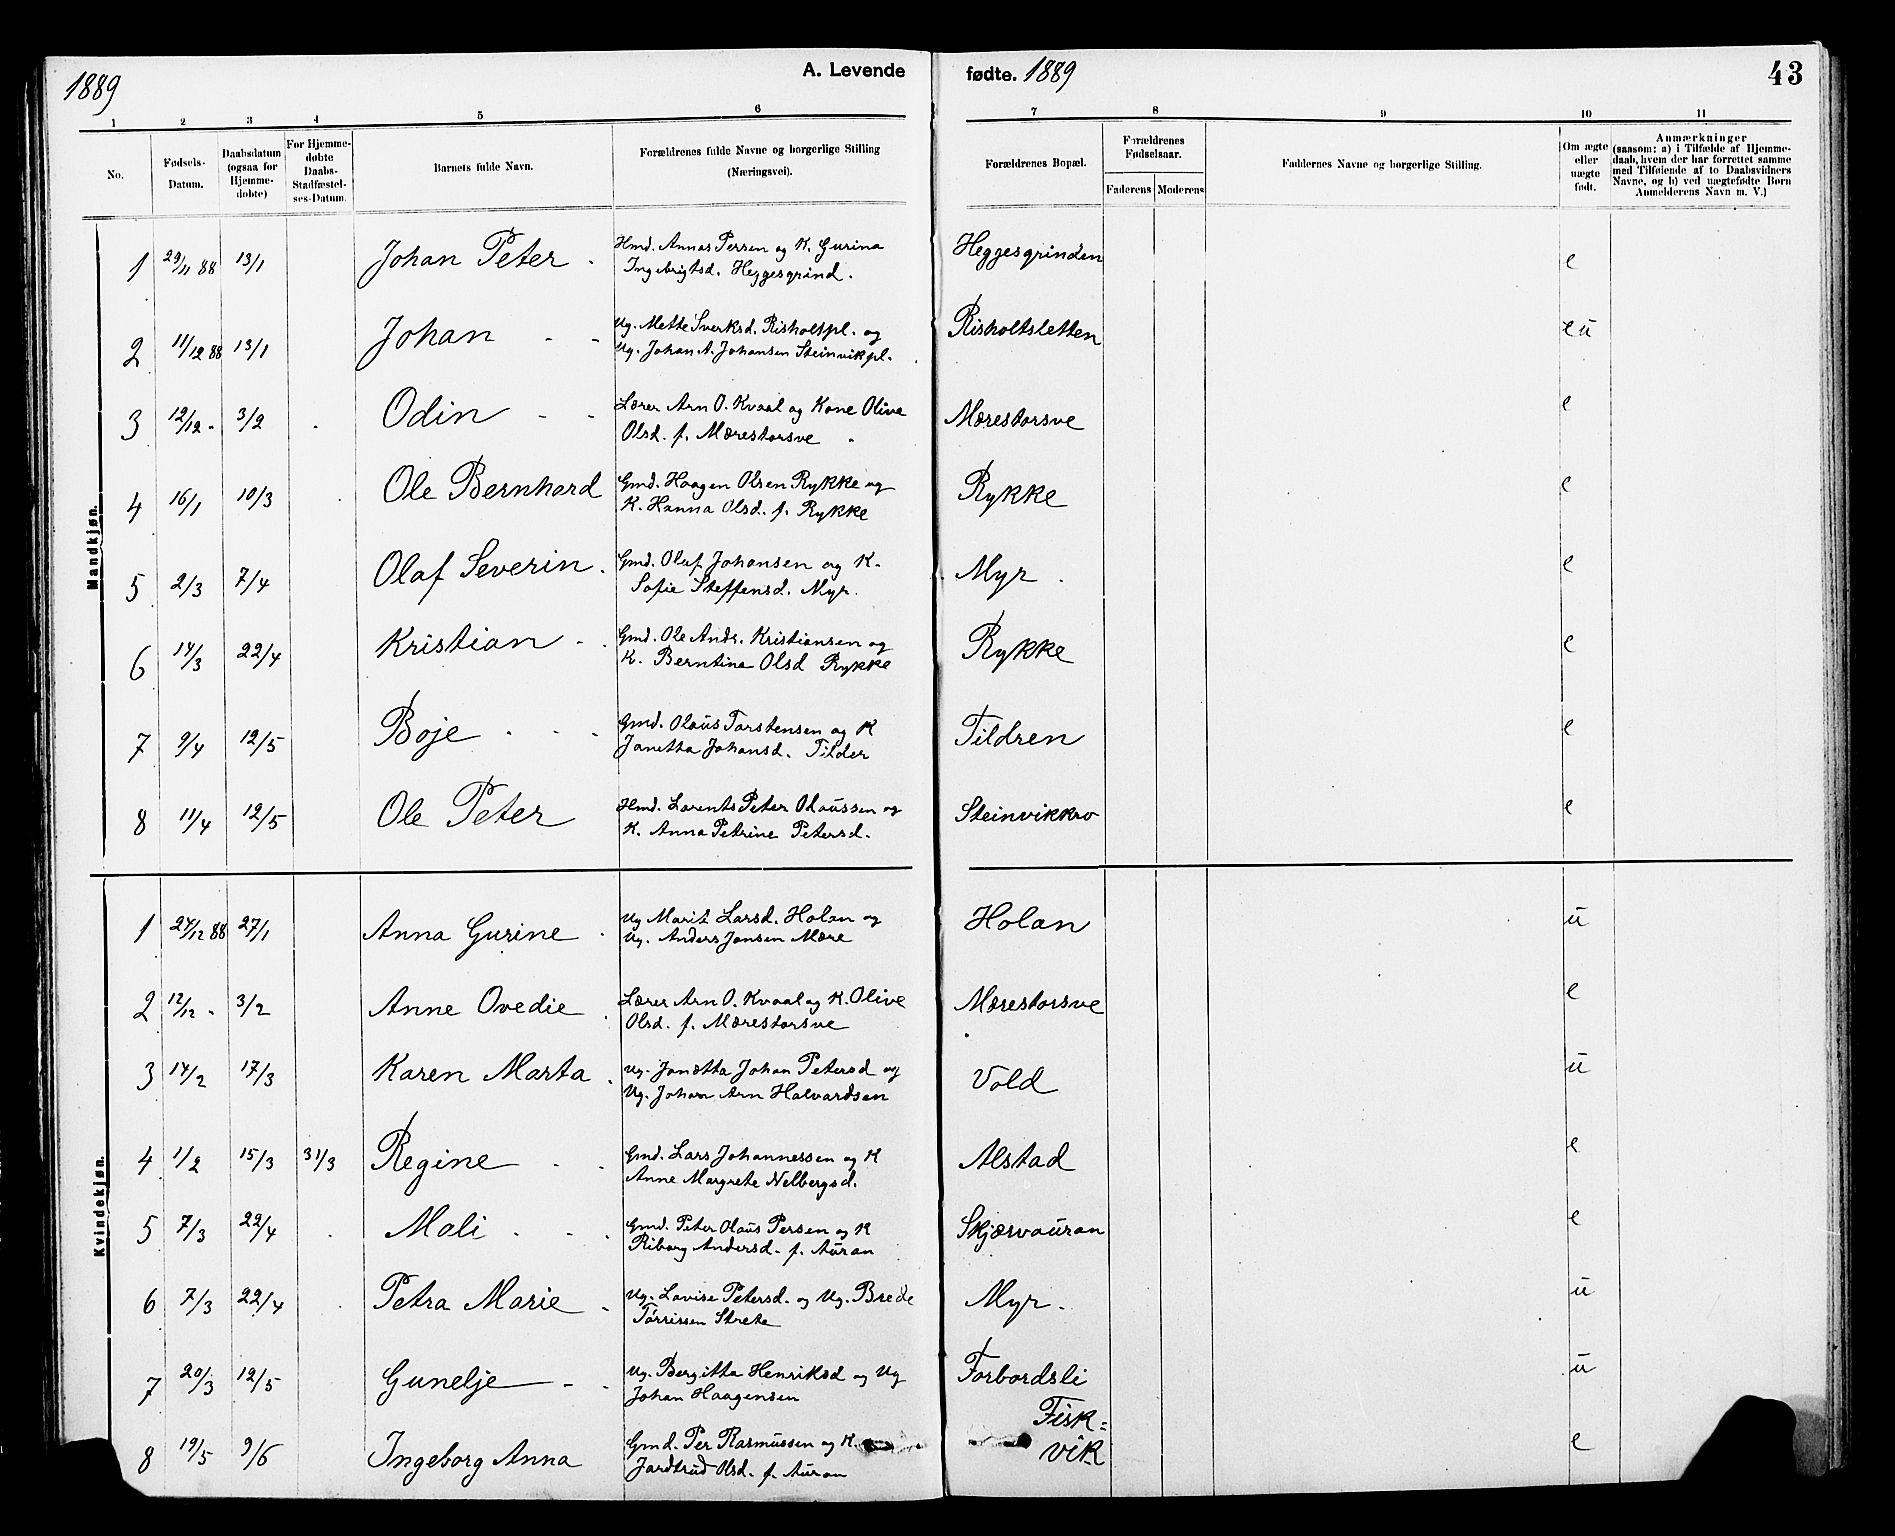 1889
A. Levende
fødte. 1889
43
1 2 3 4 5 6 7 8 9 10 11
No.
Fødsels-
Datum.
Daabsdatum
(ogsaa for
Hjemme-
døbte)
For Hjemme-
døbte
Daabs-
Stadfæstel-
ses-Datum.
Barnets fulde Navn.
Forældrenes fulde Navne og borgerlige Stilling
(Næringsvei).
Forældrenes Bopæl.
Forældrenes
Fødselsaar.
Faderens Moderens
Faddernes Navne og borgerlige Stilling.
Om ægte
eller
uægte
født.
Anmærkninger
(saasom: a) i Tilfælde af Hjemme-
daab, hvem der har forrettet samme
med Tilføiende af to Daabsvidners
Navne, og b) ved uægtefødte Børn
Anmelderens Navn m. V.)
Mandkjøn.
1 29/11 88 13/1 Johan Peter Hmd. Annas Persen og K. Gurina Heggesgrinden e
Ingebrigtsd. Heggesgrind.
2 11/12 88 13/1 Johan Ug. Mette Sverksd. Risholtpl. og Risholtsletten eu
Ug. Johan A. Johansen Steinvikpl.
3 12/12 - 3/2 Odin Lærer Arn O. Kvaal og Kone Olive Mærestorsve e
Olsd. f. Mærestorsve
4 16/1 10/3 Ole Bernhard Gmd. Haagen Olsen Rykke og Rykke e
K. Hanna Olsd. f. Rykke
5 2/3 7/4 Olaf Severin Gmd. Olaf Johansen og K. Myr e
Sofie Steffensd. Myr.
6 14/3 22/4 Kristian Gmd. Ole Andr. Kristiansen og Rykke e
K. Berntina Olsd Rykke
7 9/4 12/5 Boje Gmd. Olaus Torstensen og K Tildren e
Janetta Johansd. Tilder
8 11/4 12/5 Ole Peter Hmd. Lorents Peter Olaussen og Steinvikkro e
K. Anna Petrine Petersd.
Kvindekjøn.
1 24/12 88 27/1 Anna Gurine Ug Marit Larsd. Holan og Holan u
Ug. Anders Jonsen Mære
2 12/12 - 3/2 Anne Ovedie Lærer Arn O. Kvaal og K. Olive Mærestorsve e
Olsd. f. Mærestorsve
3 14/2 17/3 Karen Marta Ug. Janetta Johan Petersd og Vold u
Ug. Johan Arn Halvardsen
4 1/2 15/3 31/3 Regine Gmd. Lars Johannessen og K Alstad e
Anne Margrete Nelbergsd.
5 7/3 22/4 Mali Gmd. Peter Olaus Persen og K Skjærvauran e
Riborg Andersd. f. Auran
6 7/3 22/4 Petra Marie Ug. Lovise Petersd. og Ug. Brede Myr. u
Torrissen Strete
7 20/3 12/5 Gunelje Ug. Bergitta Henriksd og Ug Forbordsli u
Johan Haagensen
8 19/5 9/6 Ingeborg Anna Gmd. Per Rasmussen og K. Fisk= e
Jardtrud Olsd. f. Auran vik